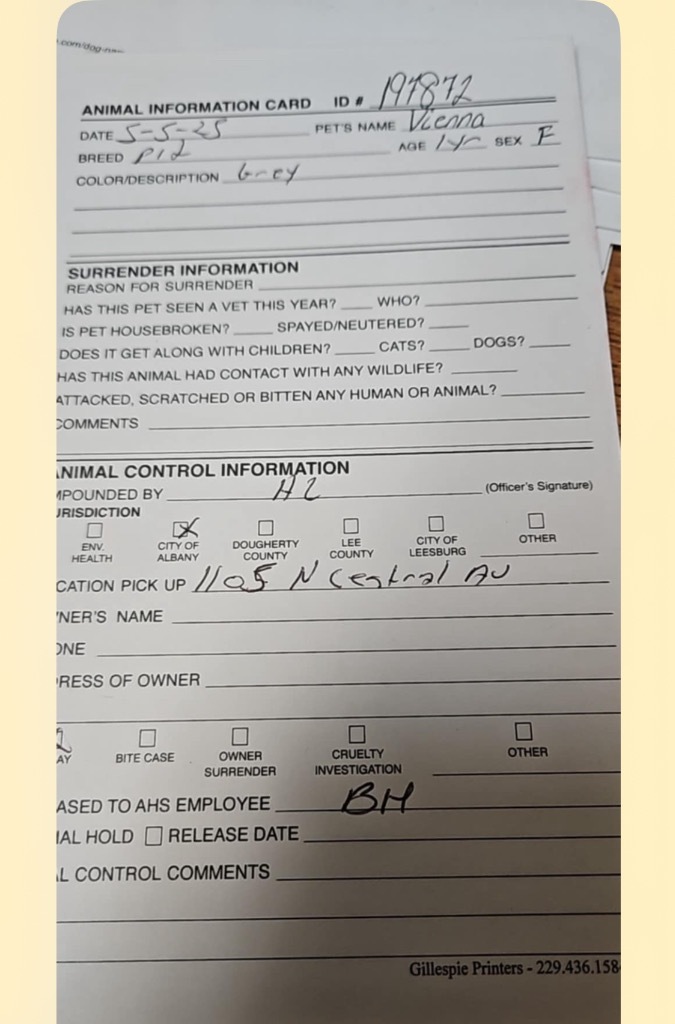 .com/dog-
ANIMAL INFORMATION CARD ID # 197872
DATE 5-5-25 PET'S NAME Vienna
BREED Pit AGE 1yr SEX F
COLOR/DESCRIPTION Grey
SURRENDER INFORMATION
REASON FOR SURRENDER
HAS THIS PET SEEN A VET THIS YEAR? WHO?
IS PET HOUSEBROKEN? SPAYED/NEUTERED?
DOES IT GET ALONG WITH CHILDREN? CATS? DOGS?
HAS THIS ANIMAL HAD CONTACT WITH ANY WILDLIFE?
ATTACKED, SCRATCHED OR BITTEN ANY HUMAN OR ANIMAL?
COMMENTS
ANIMAL CONTROL INFORMATION
MPOUNDED BY (Officer's Signature)
URISDICTION
ENV. HEALTH CITY OF ALBANY DOUGHERTY COUNTY LEE COUNTY CITY OF LEESBURG OTHER
CATION PICK UP 1105 N Central Av
NER'S NAME
ONE
RESS OF OWNER
AY BITE CASE OWNER SURRENDER CRUELTY INVESTIGATION OTHER
ASED TO AHS EMPLOYEE BH
IAL HOLD RELEASE DATE
L CONTROL COMMENTS
Gillespie Printers - 229.436.158